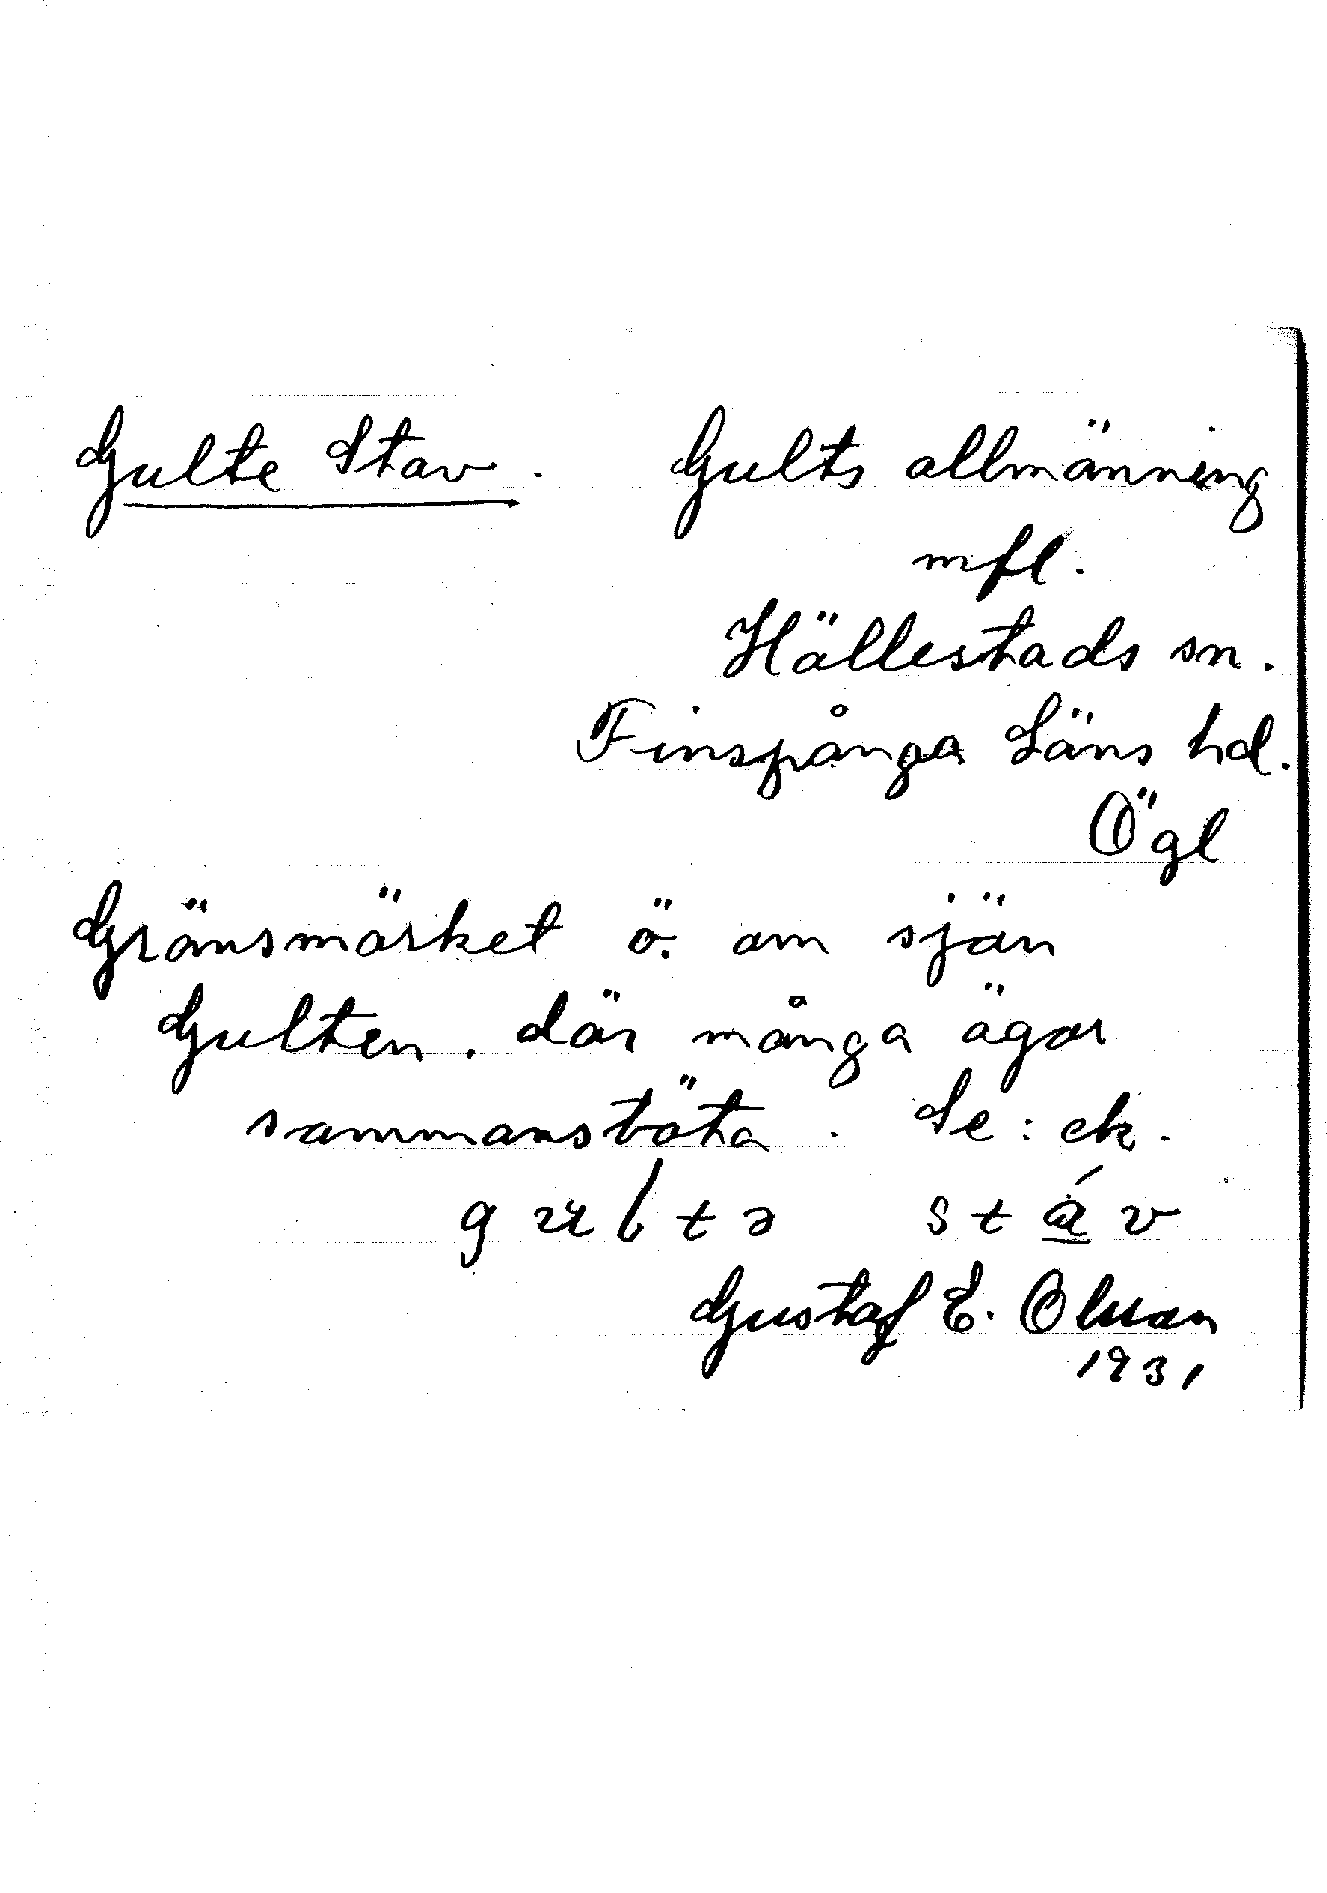 Gulte Stav. Gults allmänning
mfl.
Hällestads sn.
Finspånga Läns hd.
Ögl
Gränsmärket ö. om sjön
Gulten. där många ägor
sammanstöta. Se: ek.
gultə stáv
Gustaf E. Olsson
1931